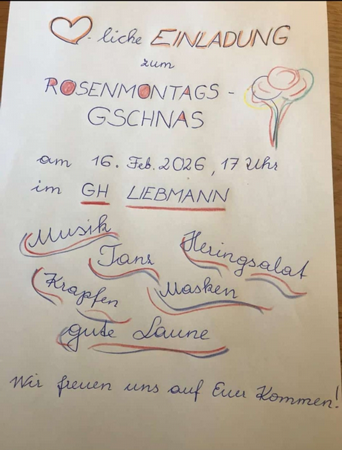 -liche EINLADUNG
zum
ROSENMONTAGS-
GSCHNAS
am 16. Feb. 2026, 17 Uhr
im GH LIEBMANN
Musik
Tanz
Heringsalat
Krapfen
Masken
gute Laune
Wir freuen uns auf Euer Kommen!